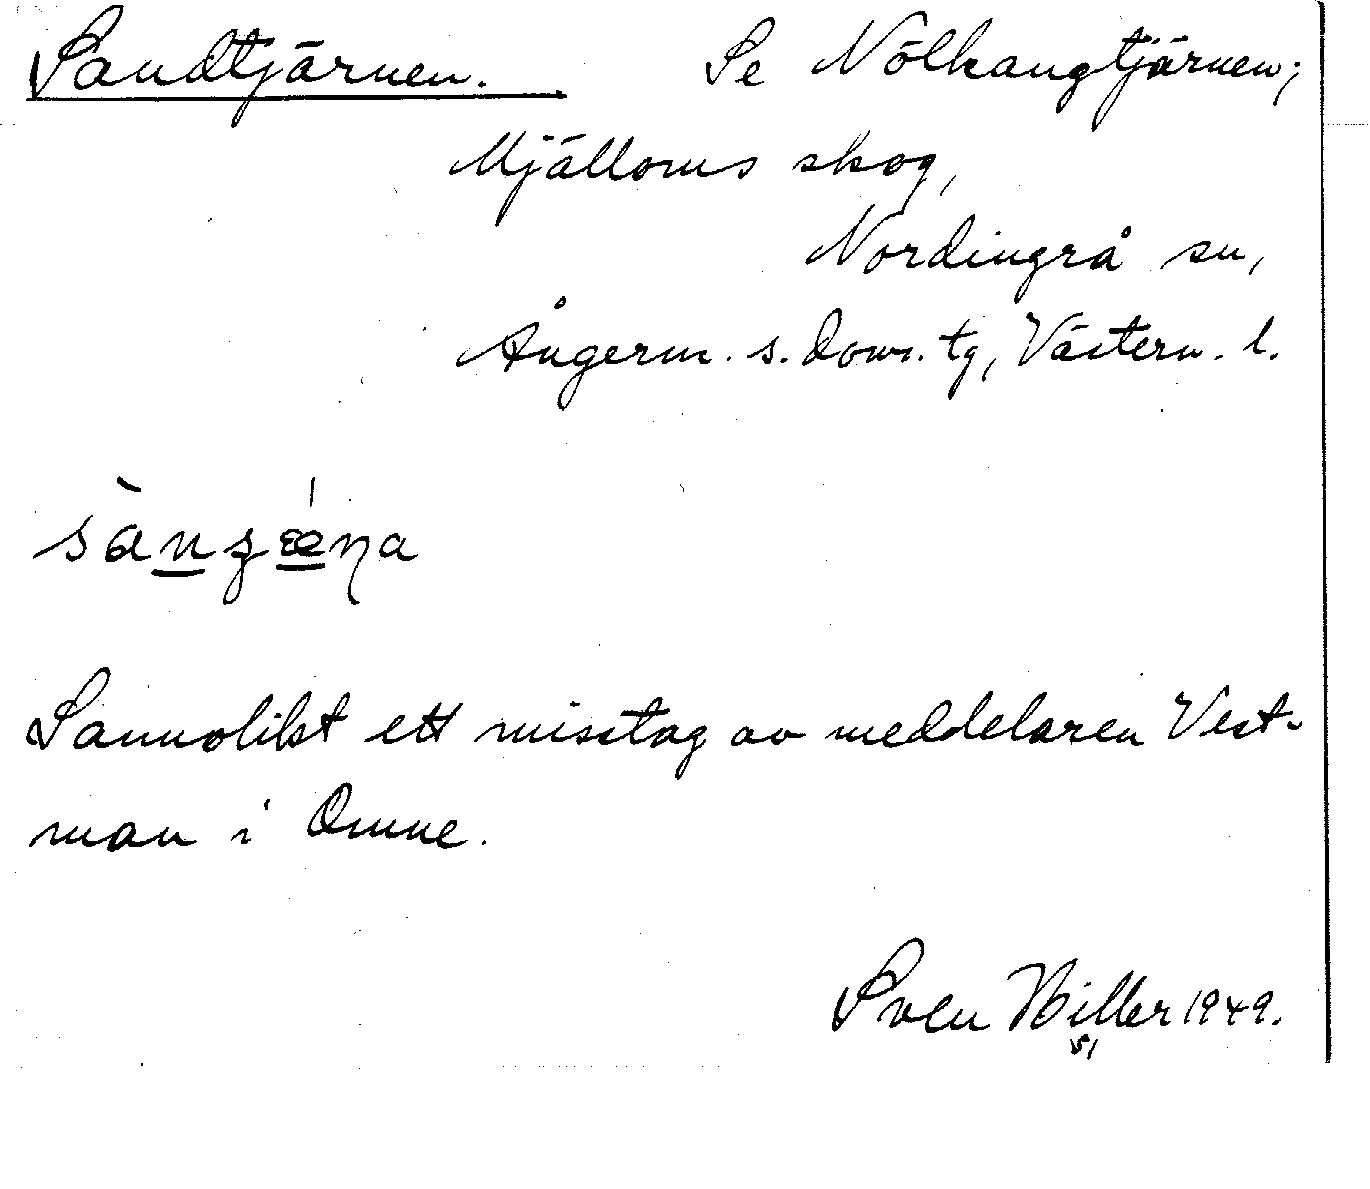 Sandtjärnen. Se Nölhangtjärnen;
Mjälloms skog,
Nordingrå sn,
Ångerm. s. doms. tg, Västern. l.
Sannolikt ett misstag av meddelaren Vest-
man i Omne.
Sven Hiller 1949.